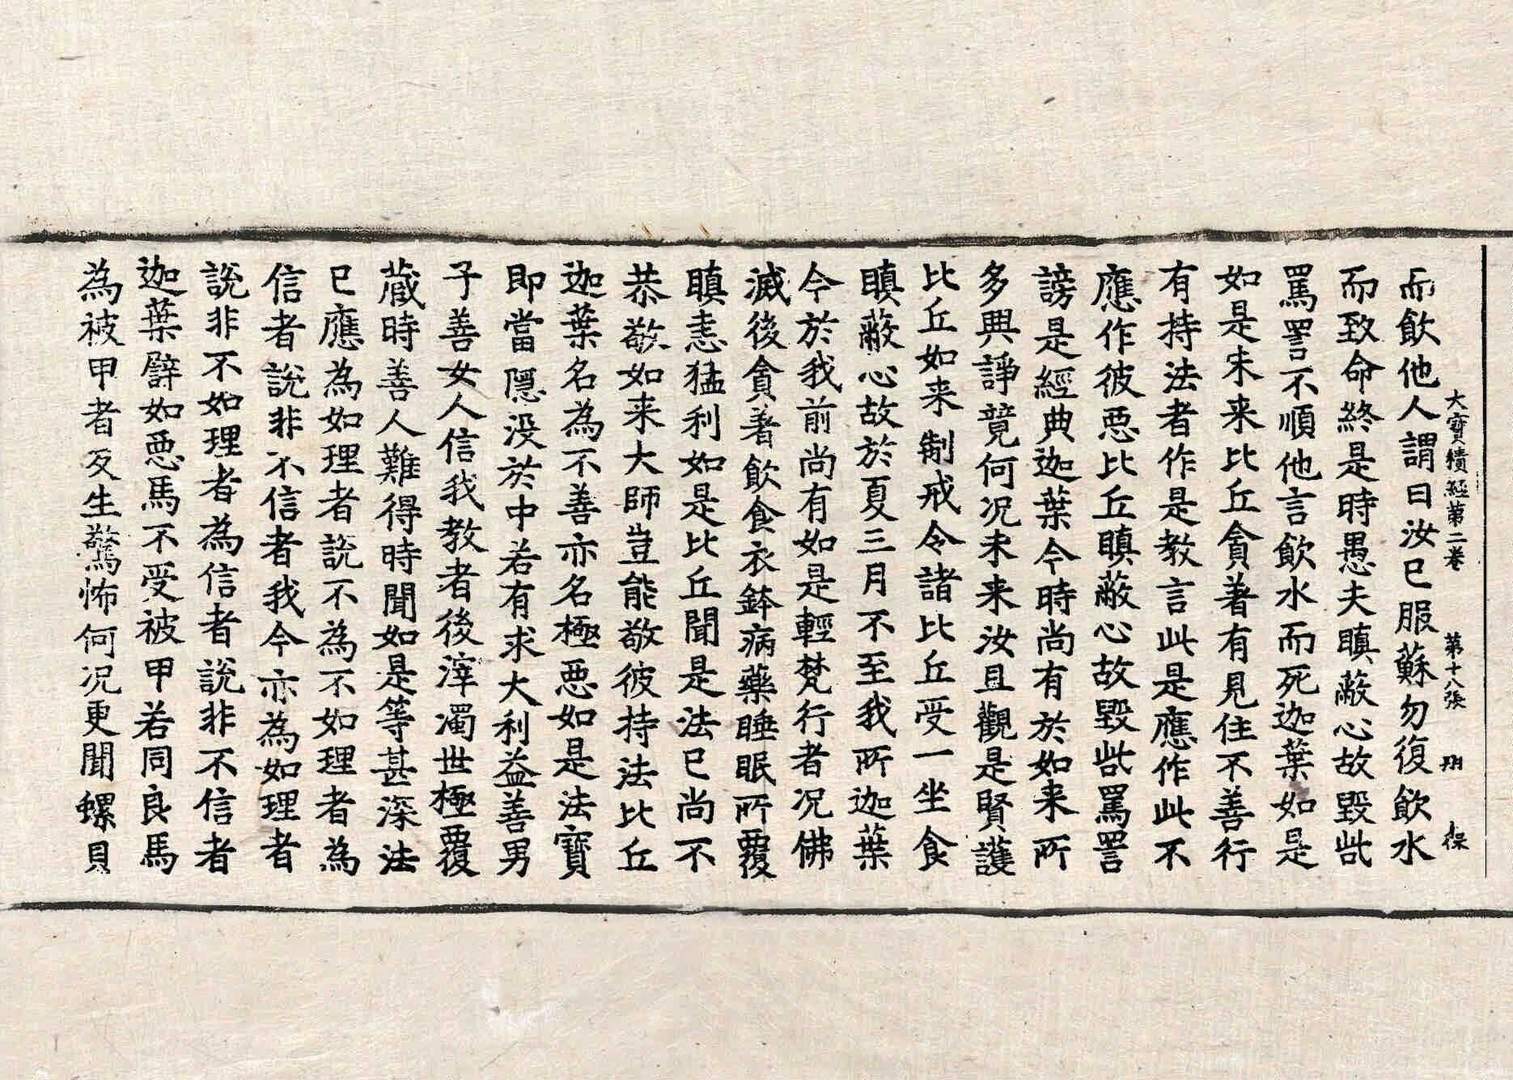 大寶積經第二卷　第十八張　翔
而飲他人謂曰汝已服蘇勿復飲水
而致命終是時愚夫瞋蔽心故毀呰
罵詈不順他言飲水而死迦葉如是
如是未来比丘貪著有見住不善行
有持法者作是教言此是應作此不
應作彼惡比丘瞋蔽心故毀呰罵詈
謗是經典迦葉今時尚有於如来所
多興諍競何况未来汝且觀是賢護
比丘如来制戒令諸比丘受一坐食
瞋蔽心故於夏三月不至我所迦葉
今於我前尚有如是輕梵行者况佛
滅後貪著飲食衣鉢病藥睡眠所覆
瞋恚猛利如是比丘聞是法已尚不
恭敬如来大師豈能敬彼持法比丘
迦葉名為不善亦名極惡如是法寶
即當隱没於中若有求大利益善男
子善女人信我教者後滓濁世極覆
蔵時善人難得時聞如是等甚深法
已應為如理者説不為不如理者為
信者説非不信者我今亦為如理者
説非不如理者為信者説非不信者
迦葉譬如惡馬不受被甲若同良馬
為被甲者反生驚怖何况更聞螺貝